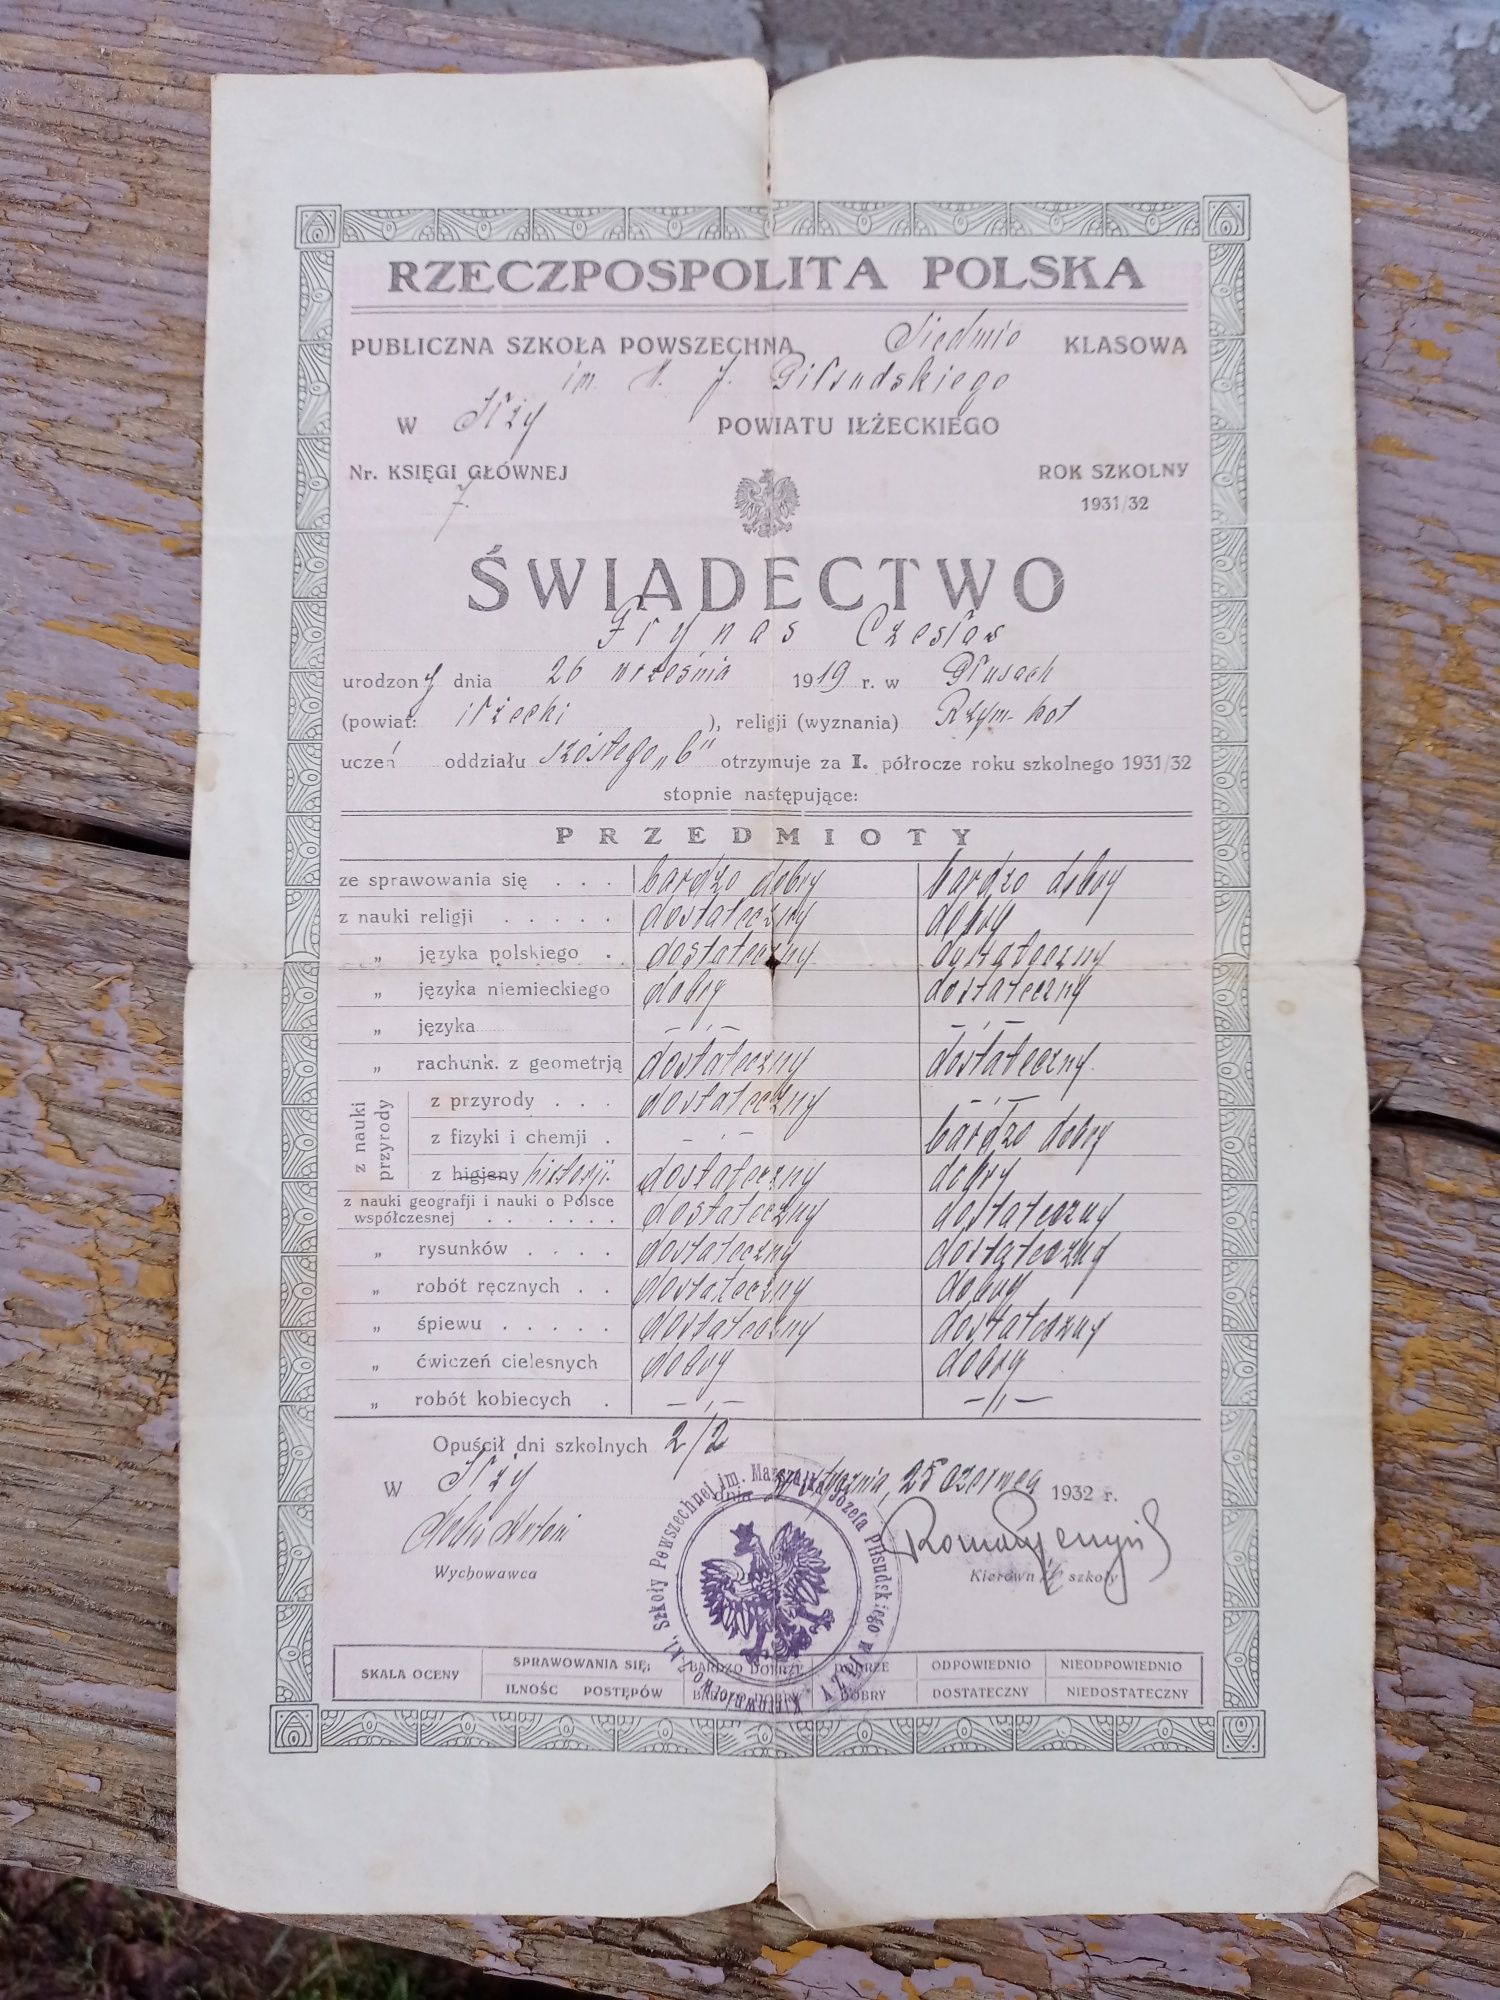 RZECZPOSPOLITA POLSKA
PUBLICZNA SZKOŁA POWSZECHNA Siedmio KLASOWA
im. M. J. Piłsudskiego
W Iłży POWIATU IŁŻECKIEGO
Nr. KSIĘGI GŁÓWNEJ ROK SZKOLNY
7. 1931/32
ŚWIADECTWO
Frynas Czesław
urodzony dnia 26 września 1919 r. w Płusach
(powiat: iłżecki ), religji (wyznania) Rzym-kat
uczeń oddziału szóstego „b" otrzymuje za I. półrocze roku szkolnego 1931/32
stopnie następujące:
PRZEDMIOTY
ze sprawowania się . . . bardzo dobry bardzo dobry
z nauki religji . . . . . dostateczny dobry
„ języka polskiego . dostateczny dostateczny
„ języka niemieckiego dobry dostateczny
„ języka — „ — — „ —
„ rachunk. z geometrją dostateczny dostateczny
z nauki przyrody
z przyrody . . . dostateczny — „ —
z fizyki i chemji . — „ — bardzo dobry
z higjeny historji. dostateczny dobry
z nauki geografji i nauki o Polsce
współczesnej . . . . . . . dostateczny dostateczny
„ rysunków . . . . dostateczny dostateczny
„ robót ręcznych . . dostateczny dobry
„ śpiewu . . . . . dostateczny dostateczny
„ ćwiczeń cielesnych dobry dobry
„ robót kobiecych . — „ — — „ —
Opuścił dni szkolnych 2/2
W Iłży dnia stycznia, 25 czerwca 1932 r.
Wychowawca Kierownik szkoły
Kierownictwo 7 kl. Szkoły Powszechnej im. Marszałka Józefa Piłsudskiego w IŁŻY
SKALA OCENY SPRAWOWANIA SIĘ: BARDZO DOBRZE DOBRZE ODPOWIEDNIO NIEODPOWIEDNIO
ILNOŚC POSTĘPÓW BARDZO DOBRY DOBRY DOSTATECZNY NIEDOSTATECZNY